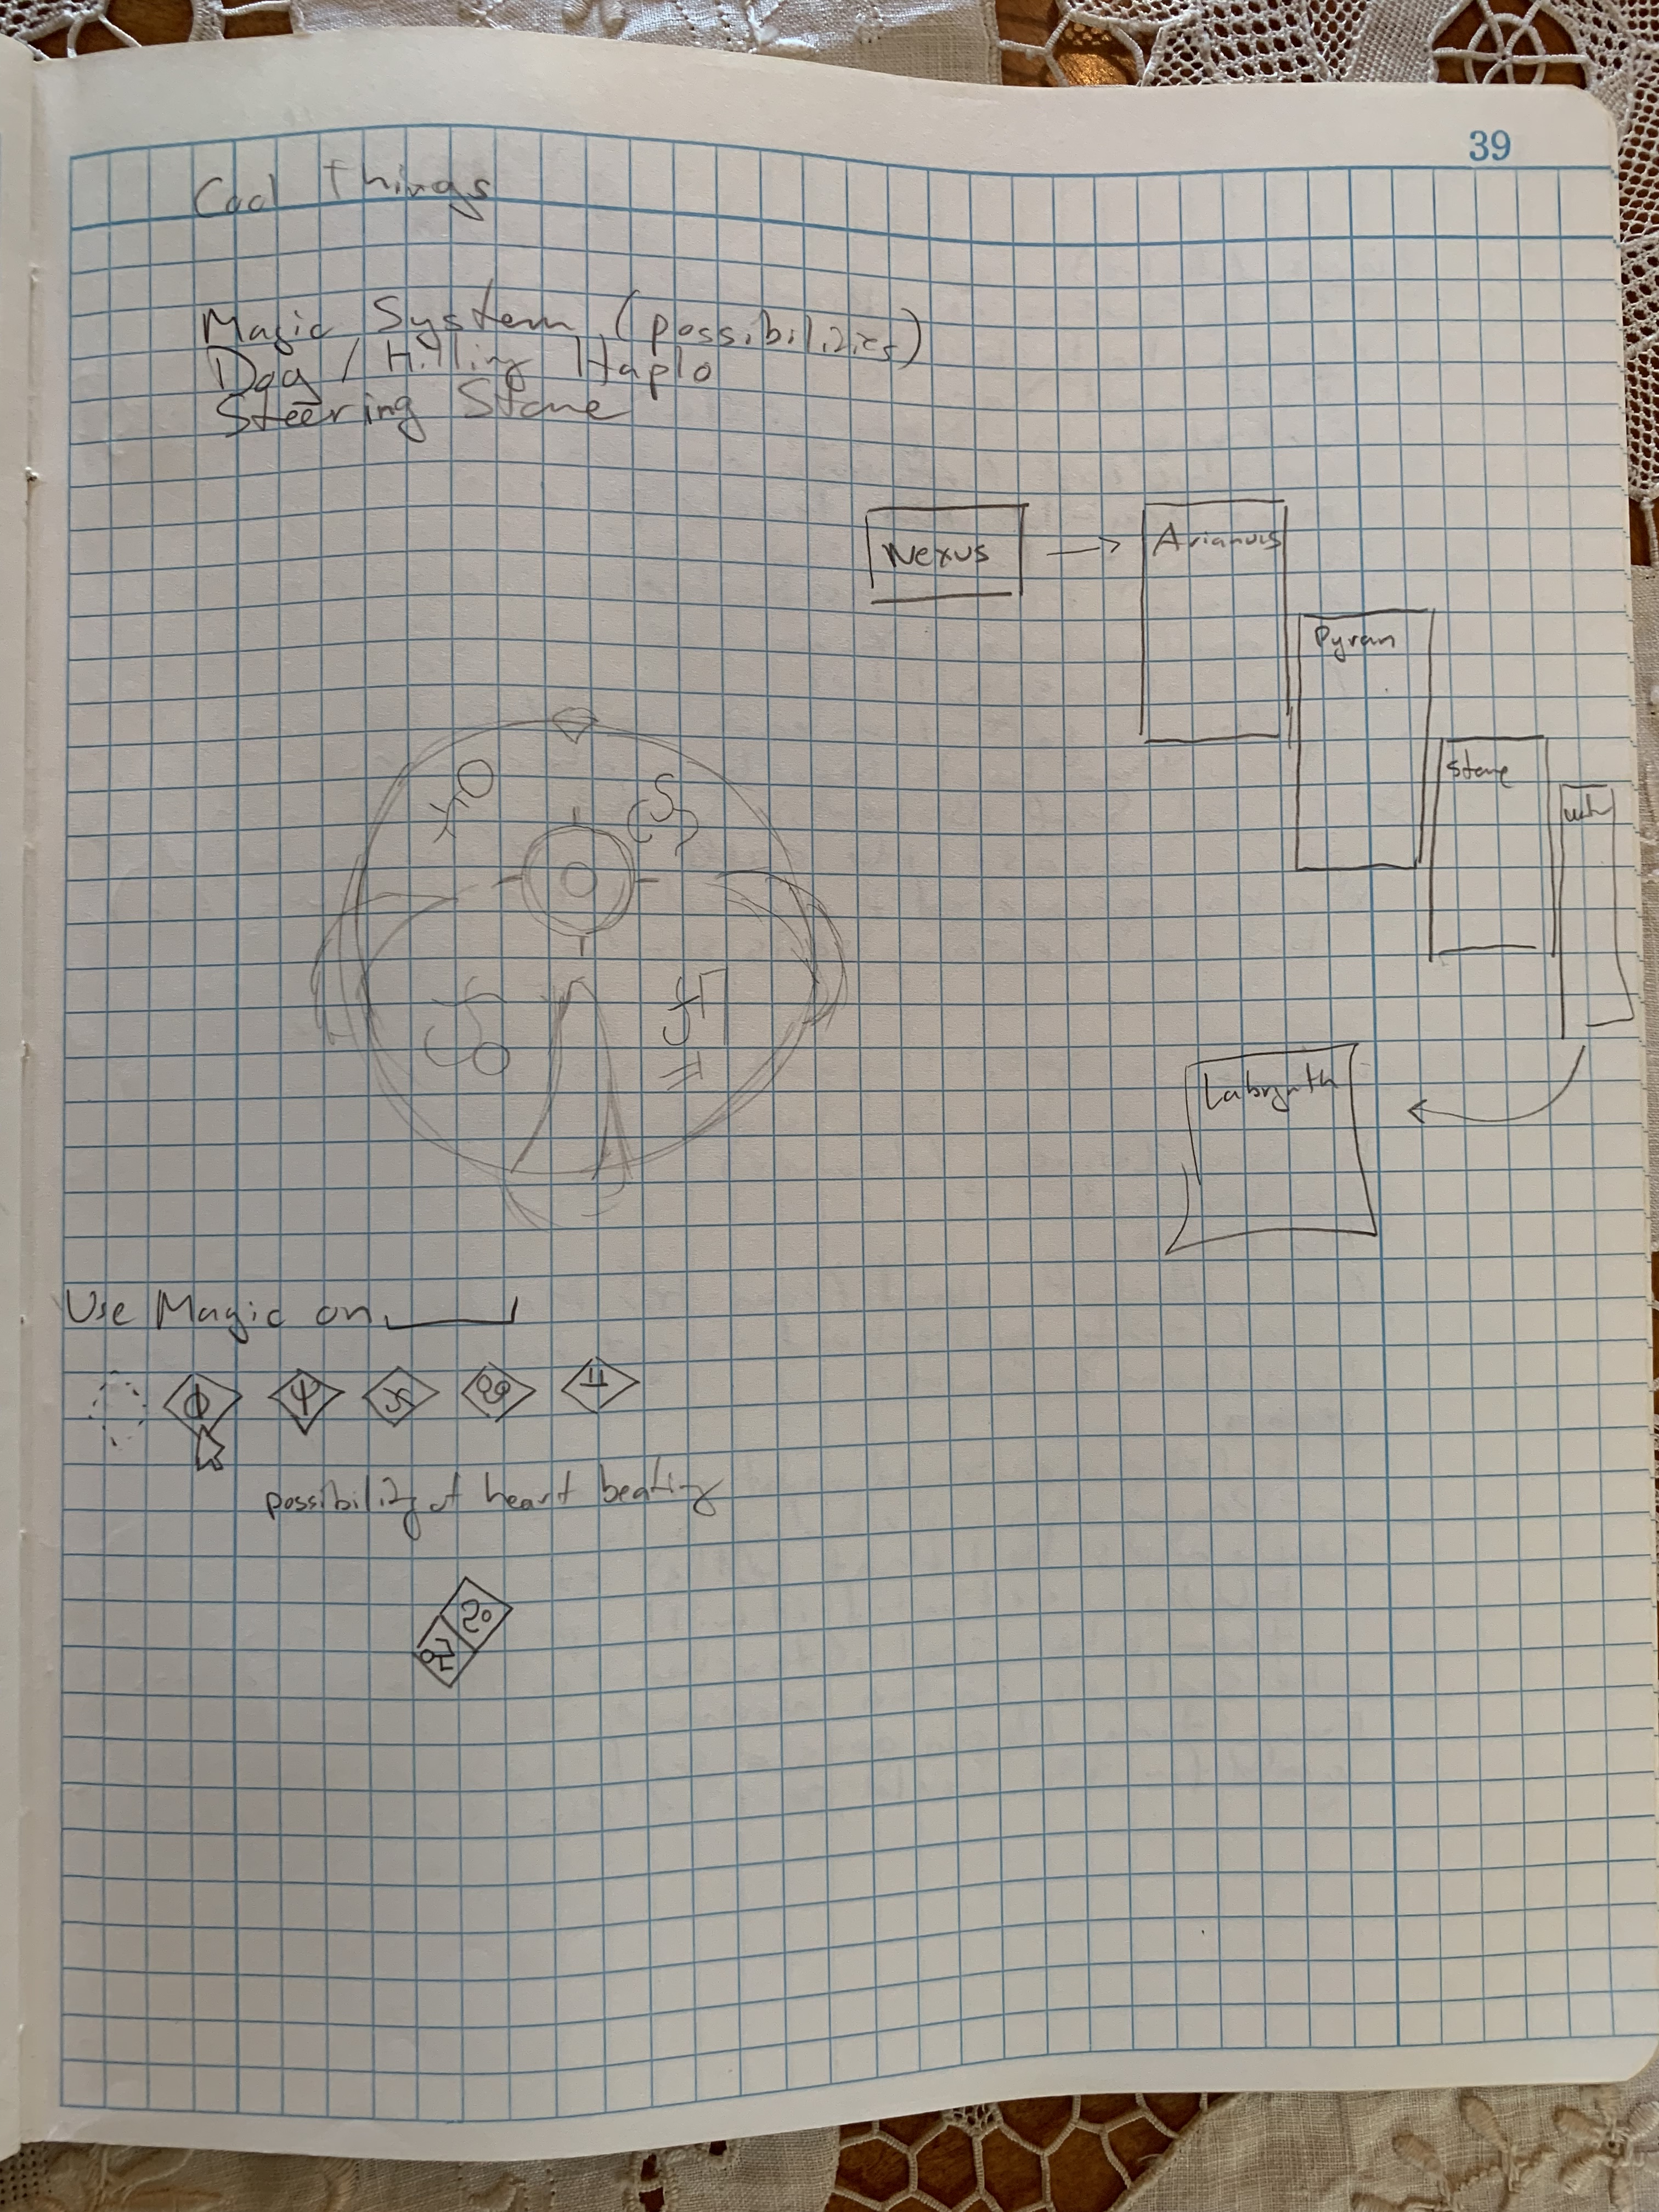 39
Cool Things
Magic System (possibilities)
Dog / Hitting Haplo
Steering Stone
Nexus
Arianus
Pyran
Stone
Labrynth
Use Magic on
possibility of heart beating